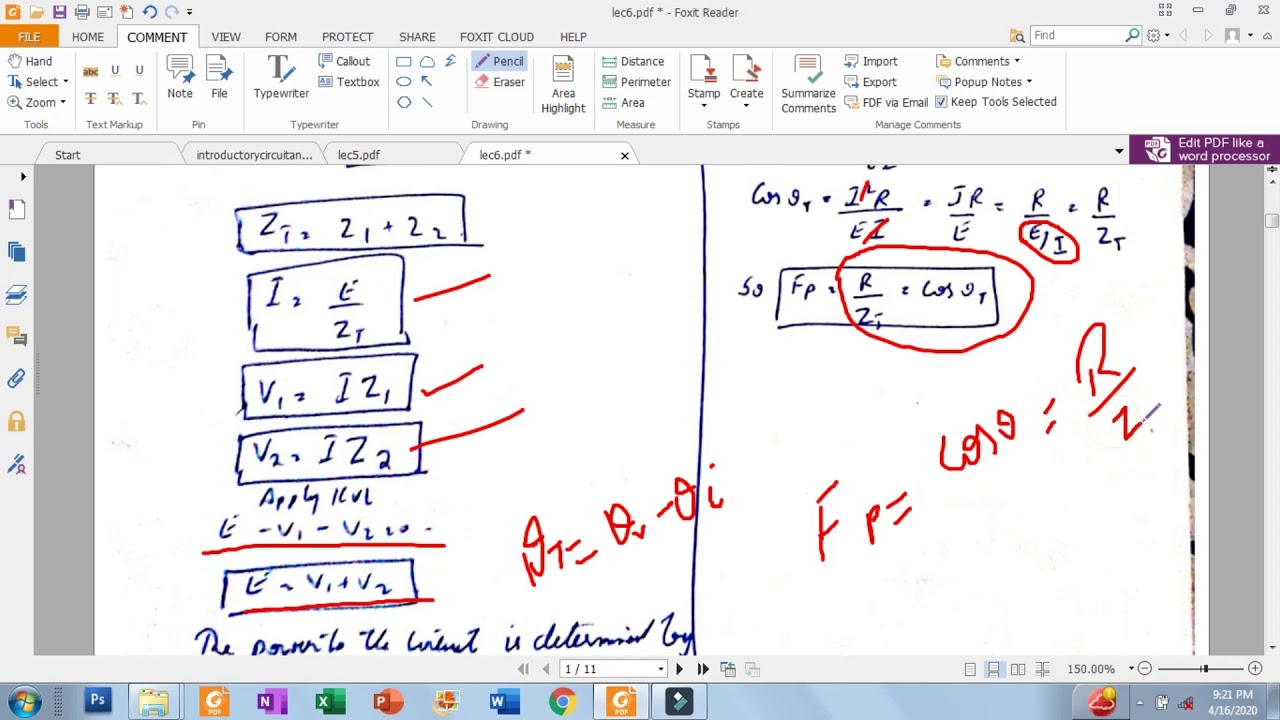 lec6.pdf * - Foxit Reader
FILE HOME COMMENT VIEW FORM PROTECT SHARE FOXIT CLOUD HELP
Find
Hand
Select
Zoom
Tools
abc U U
T T T
Text Markup
Note
File
Pin
Typewriter
Callout
Textbox
Typewriter
Pencil
Eraser
Area
Highlight
Drawing
Distance
Perimeter
Area
Measure
Stamp
Create
Stamps
Summarize
Comments
Import
Export
FDF via Email
Comments
Popup Notes
Keep Tools Selected
Manage Comments
Start
introductorycircuitan...
lec5.pdf
lec6.pdf *
Edit PDF like a
word processor
Z_T = Z1 + Z2
I = E/Z_T
V1 = I Z1
V2 = I Z2
Apply KVL
E - V1 - V2 = 0
E = V1 + V2
The power to the circuit is determined by
θ_T = θv - θi
Cos θ_T = I²R/EI = IR/E = R/E/I = R/Z_T
So Fp = R/Z_T = cos θ_T
cos θ = R/Z
Fp =
1 / 11
150.00%
Ps
PDF
N
X
P
W
PDF
9:21 PM
4/16/2020